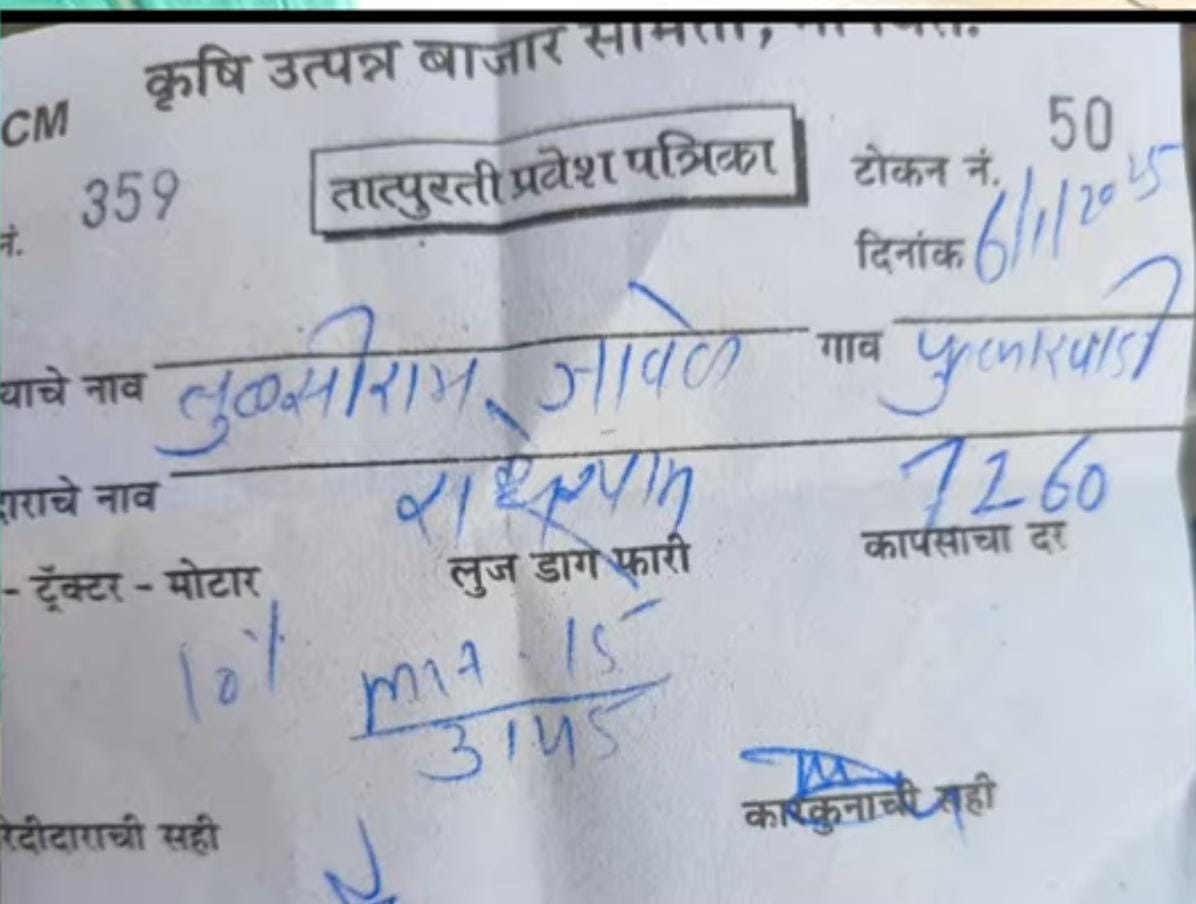 कृषि उत्पन्न बाजार समिती,
CM
50
359
तात्पुरती प्रवेश पत्रिका
टोकन नं.
नं.
दिनांक 6/1/2025
याचे नाव तुळसीराम गाव
दाराचे नाव राधेश्याम 7260
- ट्रॅक्टर - मोटार लुज डाग फारी कापसाचा दर
10% 15
कारकुनाची सही
रेदीदाराची सही